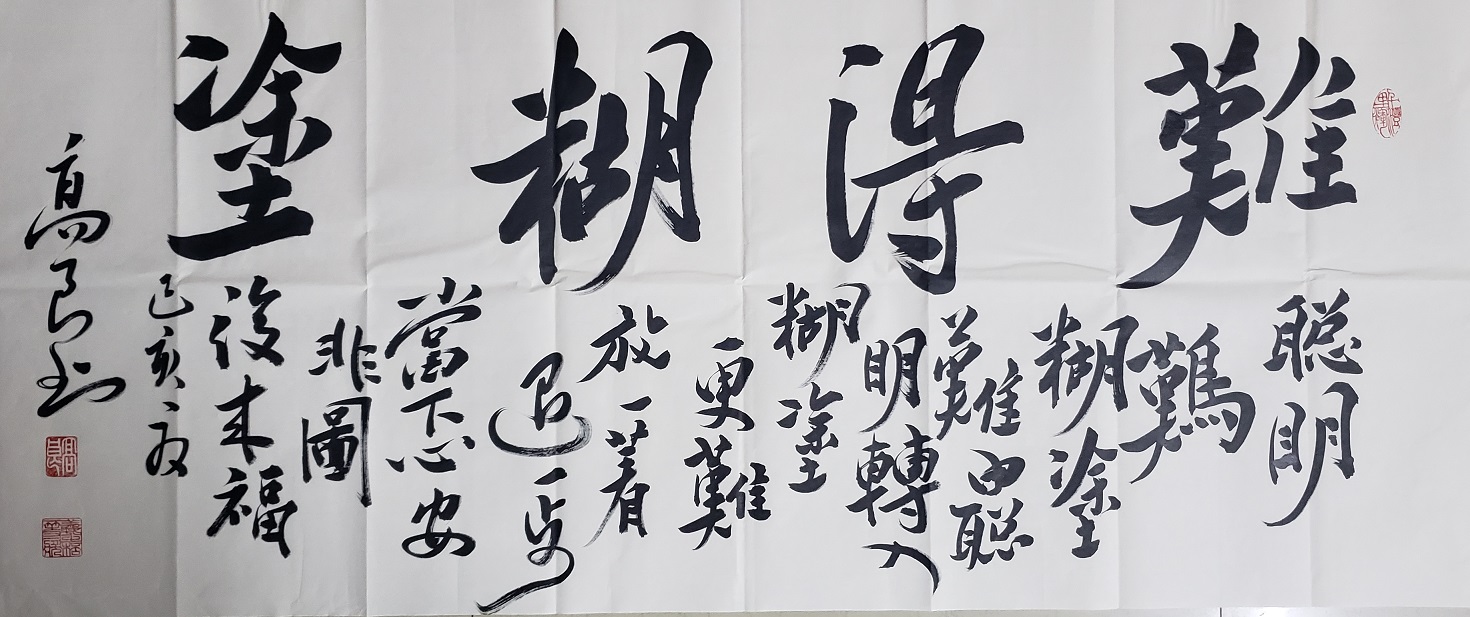 難得糊塗
聪明
難
糊塗
難由聪
明轉入
糊塗
更難
放一著
退一步
當下心安
非圖
後来福
己亥夏
高良